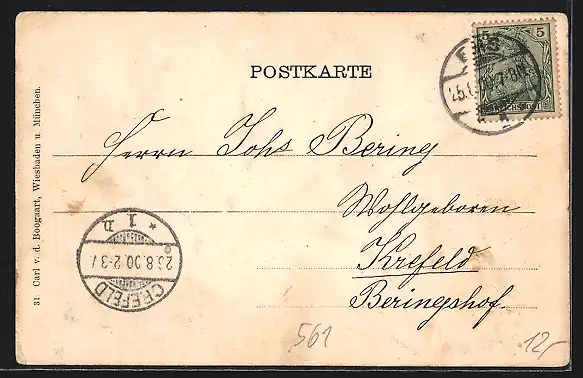 POSTKARTE
5 5
REICHSPOST
EMS
Herrn Johs Bering
Wohlgeboren
Krefeld
Beringshof.
* 1 n
26.8.00.2-3
CREFELD
31 Carl v. d. Boogaart, Wiesbaden u. München.
561
12,-